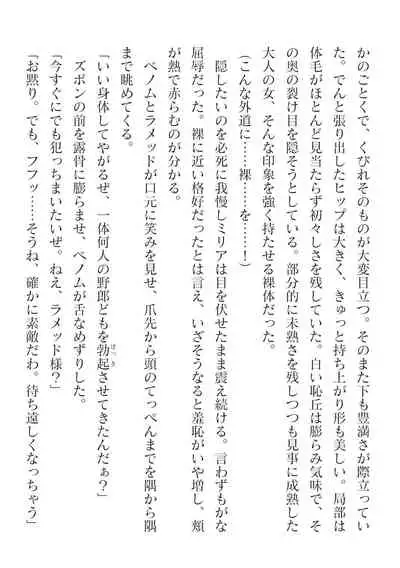 かのごとくで、くびれそのものが大変目立つ。そのまた下も豊満さが際立ってい
た。でんと張り出したヒップは大きく、きゅっと持ち上がり形も美しい。局部は
体毛がほとんど見当たらず初々しさを残していた。白い恥丘は膨らみ気味で、そ
の奥の裂け目を隠そうとしている。部分的に未熟さを残しつつも見事に成熟した
大人の女、そんな印象を強く持たせる裸体だった。
（こんな外道に……裸……を……！）
隠したいのを必死に我慢しミリアは目を伏せたまま震え続ける。言わずもがな
屈辱だった。裸に近い格好だったとは言え、いざそうなると羞恥がいや増し、頬
が熱で赤らむのが分かる。
ベノムとラメッドが口元に笑みを見せ、爪先から頭のてっぺんまでを隅から隅
まで眺めてくる。
「いい身体してやがるぜ、一体何人の野郎どもを勃起させてきたんだぁ？」
ぼっき
ズボンの前を露骨に膨らませ、ベノムが舌なめずりした。
「今すぐにでも犯っちまいたいぜ。ねえ、ラメッド様？」
「お黙り。でも、フフッ……そうね、確かに素敵だわ。待ち遠しくなっちゃう」